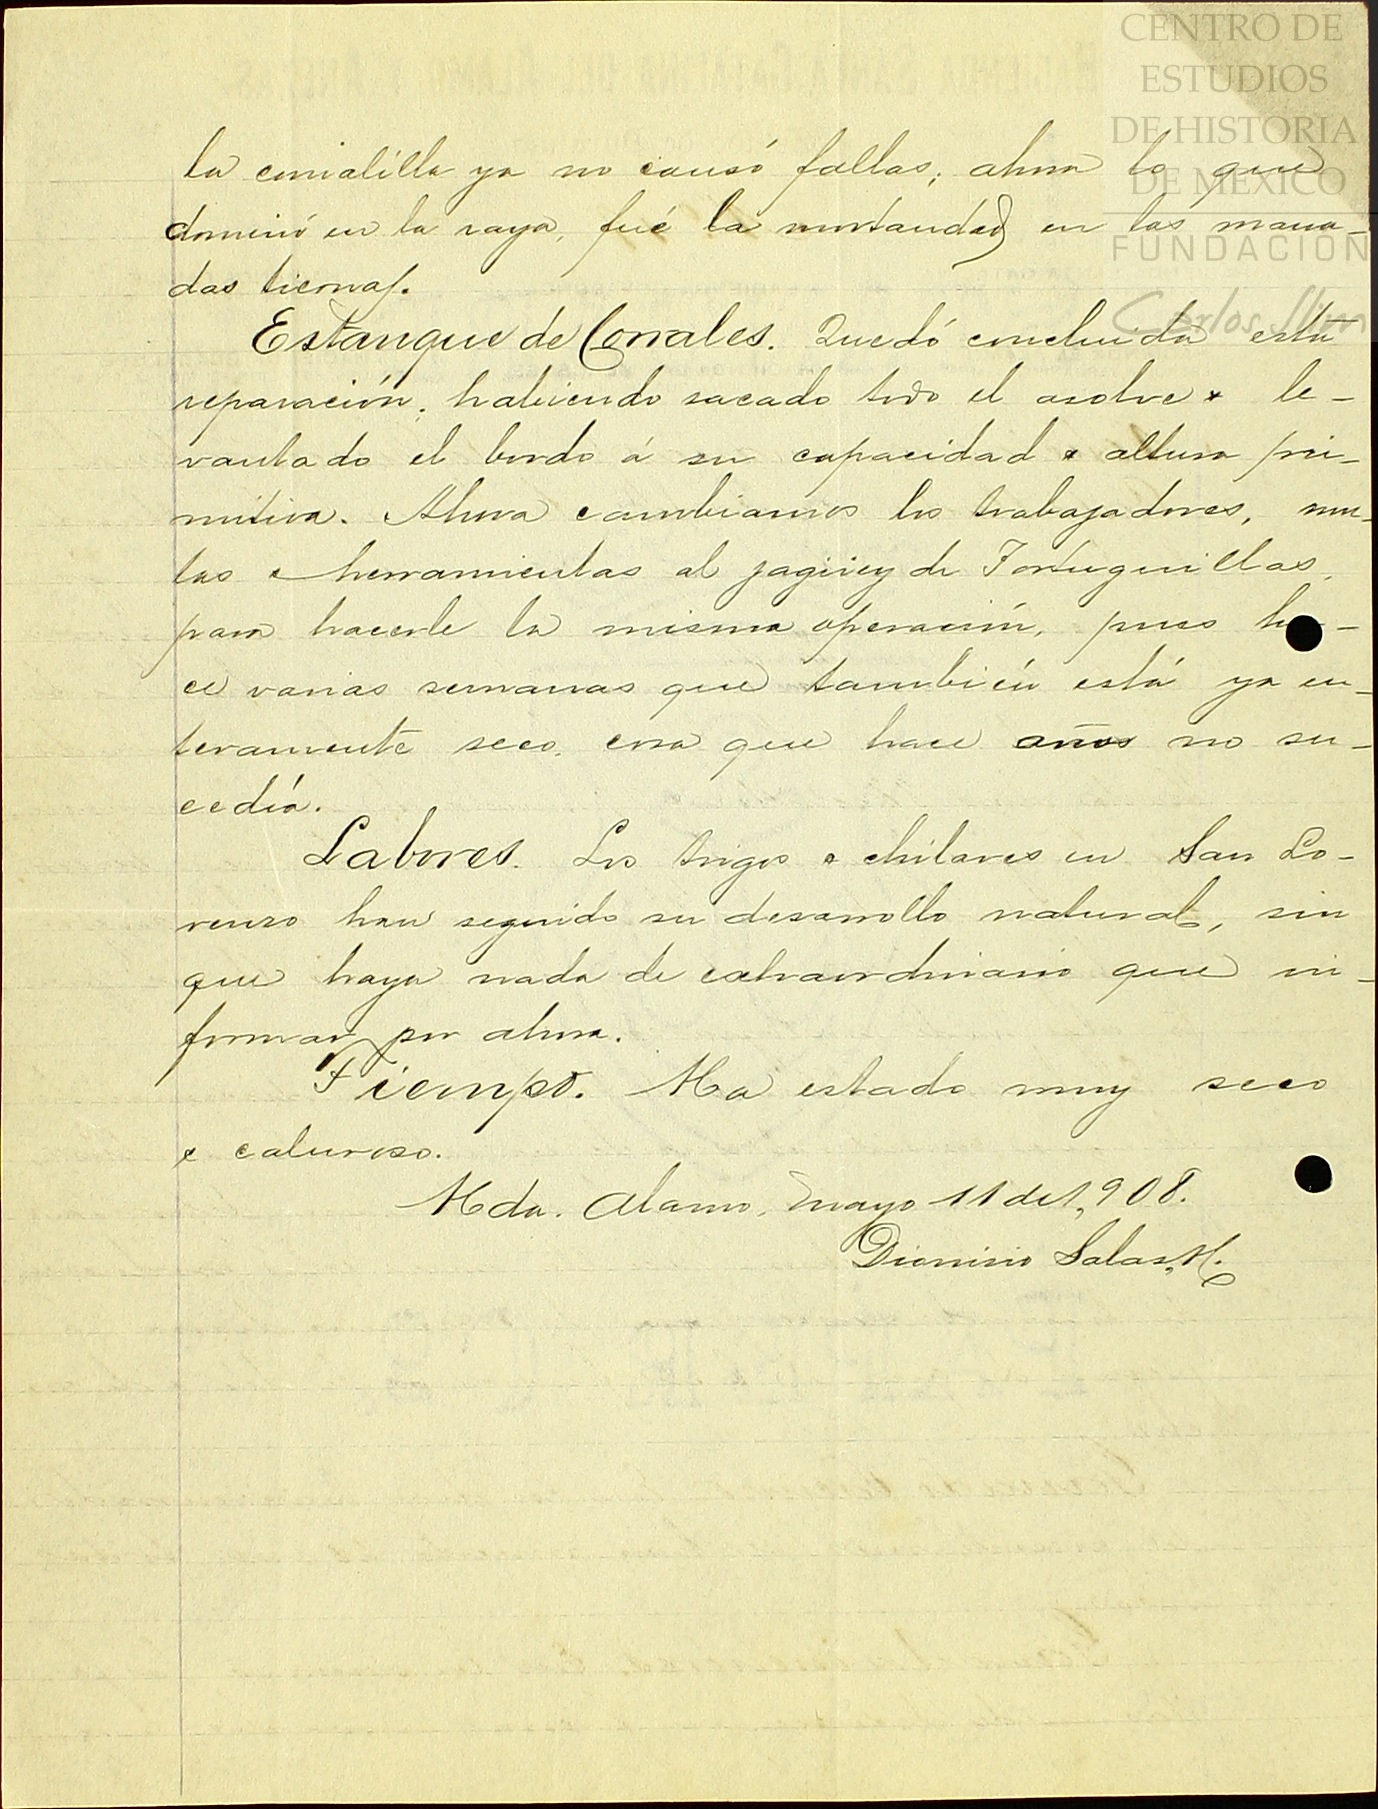 CENTRO DE
ESTUDIOS
DE HISTORIA
DE MEXICO
FUNDACIÓN
Carlos Slim
la ya no causó fallas; ahora lo que
dominó en la raya, fué la mortandad en las mana-
das tiernas.
Estanque de Corrales. Quedó concluida esta
reparación, habiendo sacado todo el asolve & le-
vantado el bordo á su capacidad & altura pri-
mitiva. Ahora cambiamos los trabajadores, mu-
las & herramientas al jagüey de Tortuguillas,
para hacerle la misma operación, pues ha-
ce varias semanas que también está ya en-
teramente seco, cosa que hace años no su-
cedía.
Labores. Los trigos & chilares en San Lo-
renzo han seguido su desarrollo natural, sin
que haya nada de extraordinario que in-
formar por ahora.
Tiempo. Ha estado muy seco
& caluroso.
Hda. Alamo, mayo 11 de 1,908.
Dionisio Salas, H.